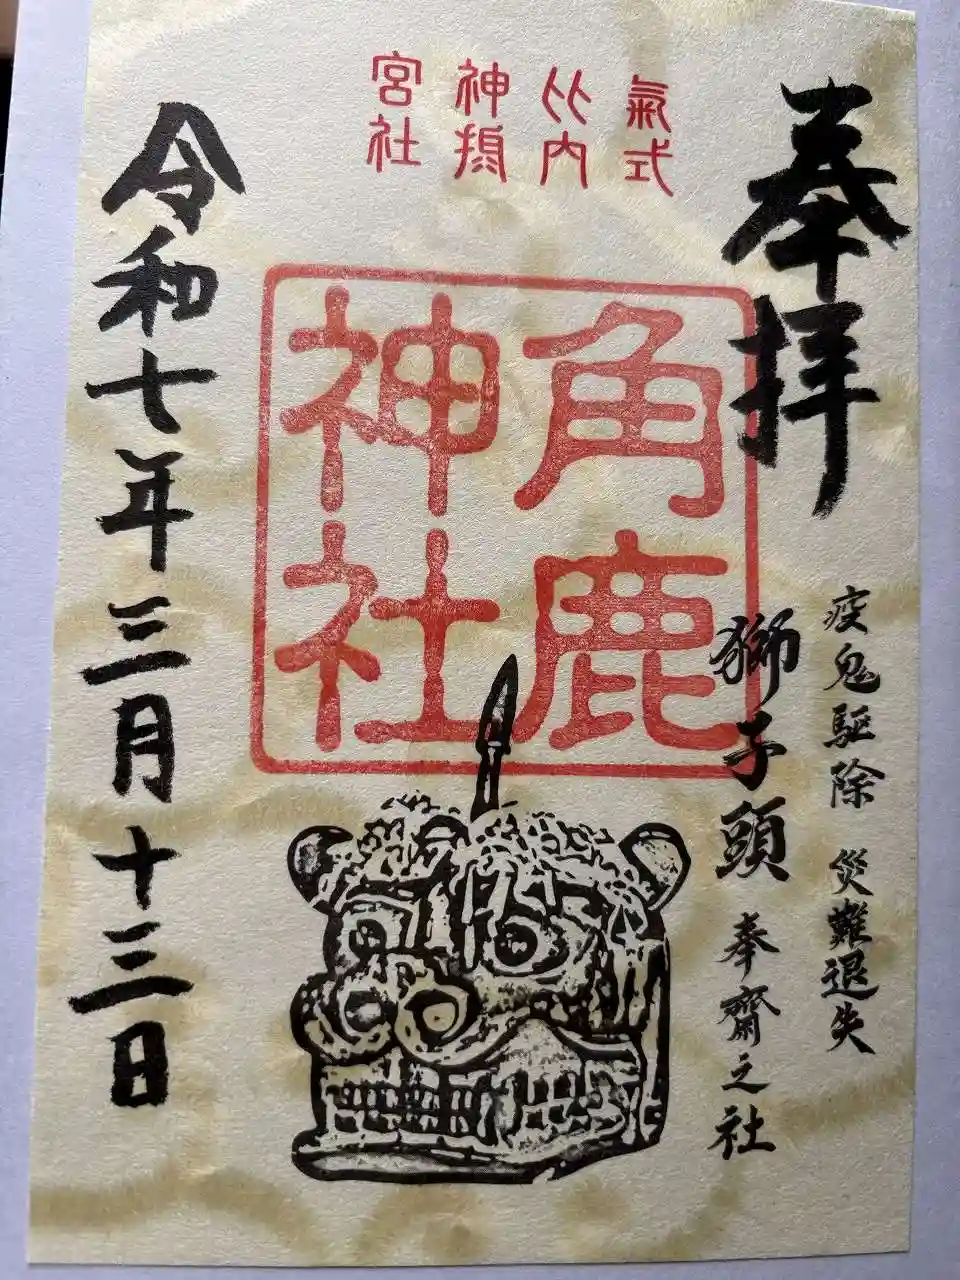 奉拝
疫鬼驅除 災難退失
獅子頭 奉齋之社
氣比神宮
式内摂社
角鹿
神社
令和七年三月十三日